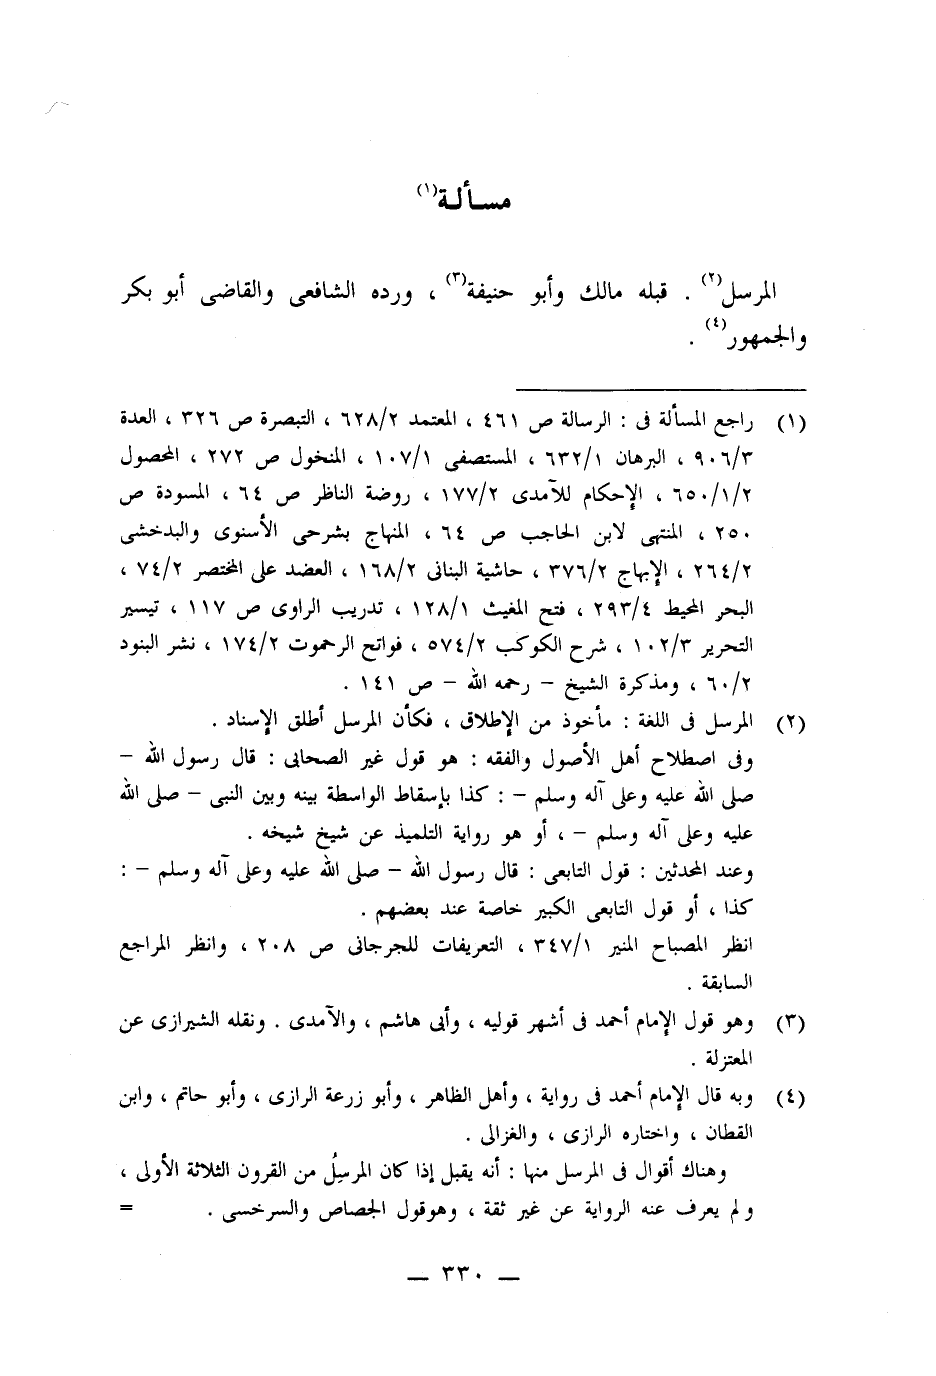 مسألة(١)
المرسل(٢) . قبله مالك وأبو حنيفة(٣) ، ورده الشافعى والقاضى أبو بكر
والجمهور(٤) .
(١) راجع المسألة فى : الرسالة ص ٤٦١ ، المعتمد ٦٢٨/٢ ، التبصرة ص ٣٢٦ ، العدة
٩٠٦/٣ ، البرهان ٦٣٢/١ ، المستصفى ١٠٧/١ ، المنخول ص ٢٧٢ ، المحصول
٦٥٠/١/٢ ، الإحكام للآمدى ١٧٧/٢ ، روضة الناظر ص ٦٤ ، المسودة ص
٢٥٠ ، المنتهى لابن الحاجب ص ٦٤ ، المنهاج بشرحى الأسنوى والبدخشى
٢٦٤/٢ ، الإبهاج ٣٧٦/٢ ، حاشية البنانى ١٦٨/٢ ، العضد على المختصر ٧٤/٢ ،
البحر المحيط ٢٩٣/٤ ، فتح المغيث ١٢٨/١ ، تدريب الراوى ص ١١٧ ، تيسير
التحرير ١٠٢/٣ ، شرح الكوكب ٥٧٤/٢ ، فواتح الرحموت ١٧٤/٢ ، نشر البنود
٦٠/٢ ، ومذكرة الشيخ – رحمه الله – ص ١٤١ .
(٢) المرسل فى اللغة : مأخوذ من الإطلاق ، فكأن المرسل أطلق الإسناد .
وفى اصطلاح أهل الأصول والفقه : هو قول غير الصحابى : قال رسول الله –
صلى الله عليه وعلى آله وسلم – : كذا بإسقاط الواسطة بينه وبين النبى – صلى الله
عليه وعلى آله وسلم – ، أو هو رواية التلميذ عن شيخ شيخه .
وعند المحدثين : قول التابعى : قال رسول الله – صلى الله عليه وعلى آله وسلم – :
كذا ، أو قول التابعى الكبير خاصة عند بعضهم .
انظر المصباح المنير ٣٤٧/١ ، التعريفات للجرجانى ص ٢٠٨ ، وانظر المراجع
السابقة .
(٣) وهو قول الإمام أحمد فى أشهر قوليه ، وأبى هاشم ، والآمدى . ونقله الشيرازى عن
المعتزلة .
(٤) وبه قال الإمام أحمد فى رواية ، وأهل الظاهر ، وأبو زرعة الرازى ، وأبو حاتم ، وابن
القطان ، واختاره الرازى ، والغزالى .
وهناك أقوال فى المرسل منها : أنه يقبل إذا كان المرسِلُ من القرون الثلاثة الأولى ،
ولم يعرف عنه الرواية عن غير ثقة ، وهوقول الجصاص والسرخسى . =
— ٣٣٠ —